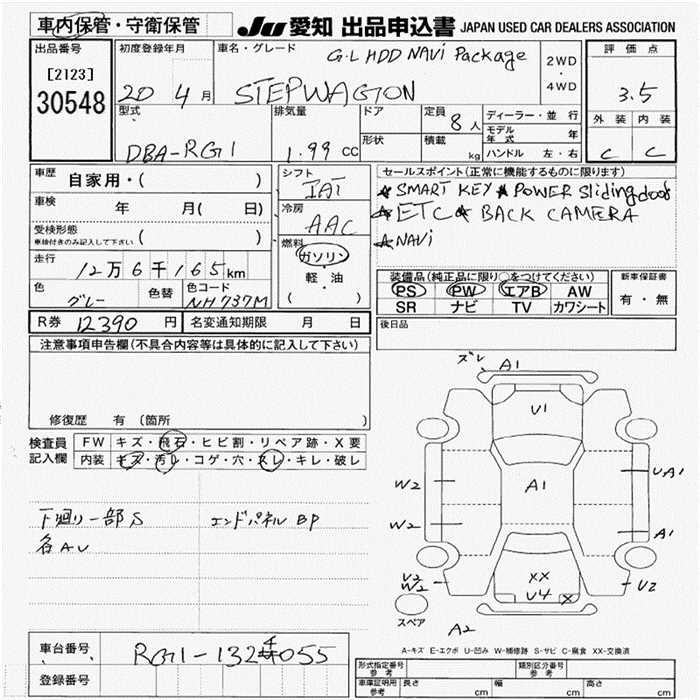 車内保管・守衛保管
JU 愛知 出品申込書 JAPAN USED CAR DEALERS ASSOCIATION
出品番号
[2123]
30548
初度登録年月
20 4月
車名・グレード
G・L HDD NAVi Package
STEPWAGON
2WD
・
4WD
評価点
3.5
外装 内装
C C
型式
DBA-RG1
排気量
1.99 CC
ドア
形状
定員 8人
積載 kg
ディーラー・並行
モデル年式 年
ハンドル 左・右
車歴 自家用・( )
車検 年 月( 日)
受検形態
車検付きのみ記入して下さい ( )
走行
12万6千165km
色
グレー
色替
色コード
NH737M
シフト
IAT
冷房
AAC
燃料
ガソリン
・
軽・油
( )
セールスポイント(正常に機能するものに限ります)
★SMART KEY ★POWER Sliding door
★ETC ★ BACK CAMERA
★NAVi
装備品(純正品に限り○をつけてください)
PS PW エアB AW
SR ナビ TV カワシート
新車保証書
有・無
R券 12390 円
名変通知期限 月 日
後日品
注意事項申告欄(不具合内容等は具体的に記入して下さい)
修復歴 有 (箇所 )
検査員
記入欄
FW キズ・飛石・ヒビ割・リペア跡・X要
内装 キズ・汚レ・コゲ・穴・スレ・キレ・破レ
下廻り一部S
各AU
エンドパネル BP
ズレ A1
U1
A1
W2
UA1
W2
A1
U2
W2
XX
U4 X
U2
スペア
A2
A-キズ E-エクボ U-凹み W-補修跡 S-サビ C-腐食 XX-交換済
車台番号 RG1-132 055
登録番号
形式指定番号
参考
類別区分番号
参考
車庫証明用
参考
長さ cm
幅 cm
高さ cm